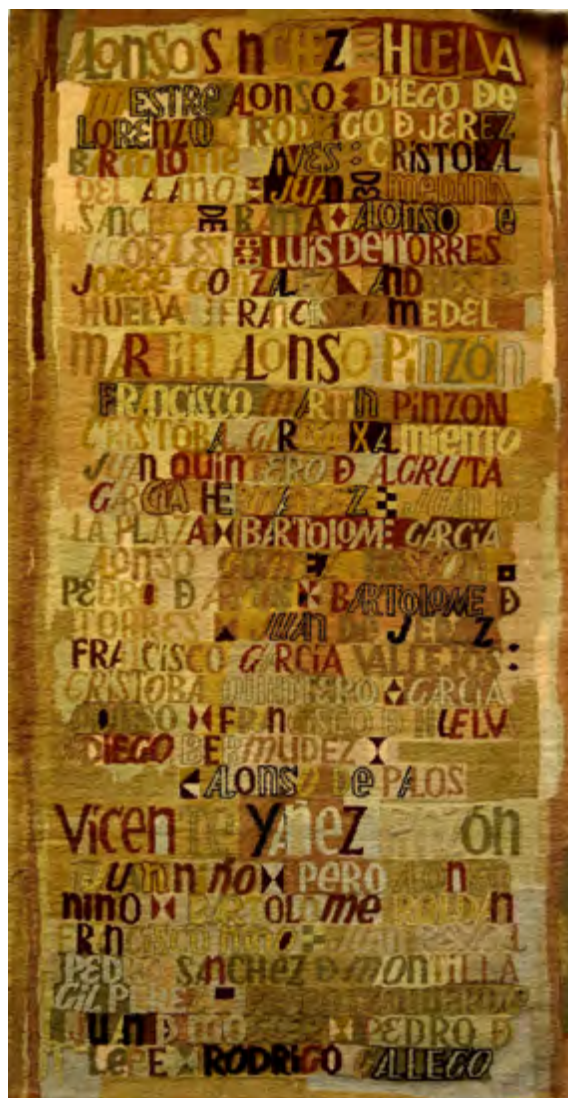 ALONSO SANCHEZ DE HUELVA
MAESTRE ALONSO : DIEGO DE
LORENZO : RODRIGO D JEREZ
BARTOLOME VIVES : CRISTOBAL
DEL ALAMO : JUAN DE MEDINA
SANCHO DE RAMA ALONSO DE
MORALES : LUIS DE TORRES
JORGE GONZALEZ ANDRES D
HUELVA FRANCISCO MEDEL
MARTIN ALONSO PINZÓN
FRANCISCO MARTIN PINZON
CRISTOBAL GARCIA XALMIENTO
JUAN QUINTERO D ALGRUTA
GARCIA HERNANDEZ : JUAN D
LA PLAZA BARTOLOME GARCIA
ALONSO GOMEZ RASCON
PEDRO D ARCOS BARTOLOME D
TORRES JUAN DE JEREZ
FRANCISCO GARCIA VALLEJOS :
CRISTOBAL QUINTERO GARCIA
ALONSO FRANCISCO D HUELVA
DIEGO BERMUDEZ
ALONSO DE PALOS
VICENTE YAÑEZ PINZÓN
JUAN NIÑO PERO ALONSO
NINO BARTOLOME ROLDAN
FRANCISCO NIÑO : JUAN
PEDRO SANCHEZ D MONTILLA
GIL PEREZ
JUAN D MOGUER PEDRO D
LEPE RODRIGO GALLEGO